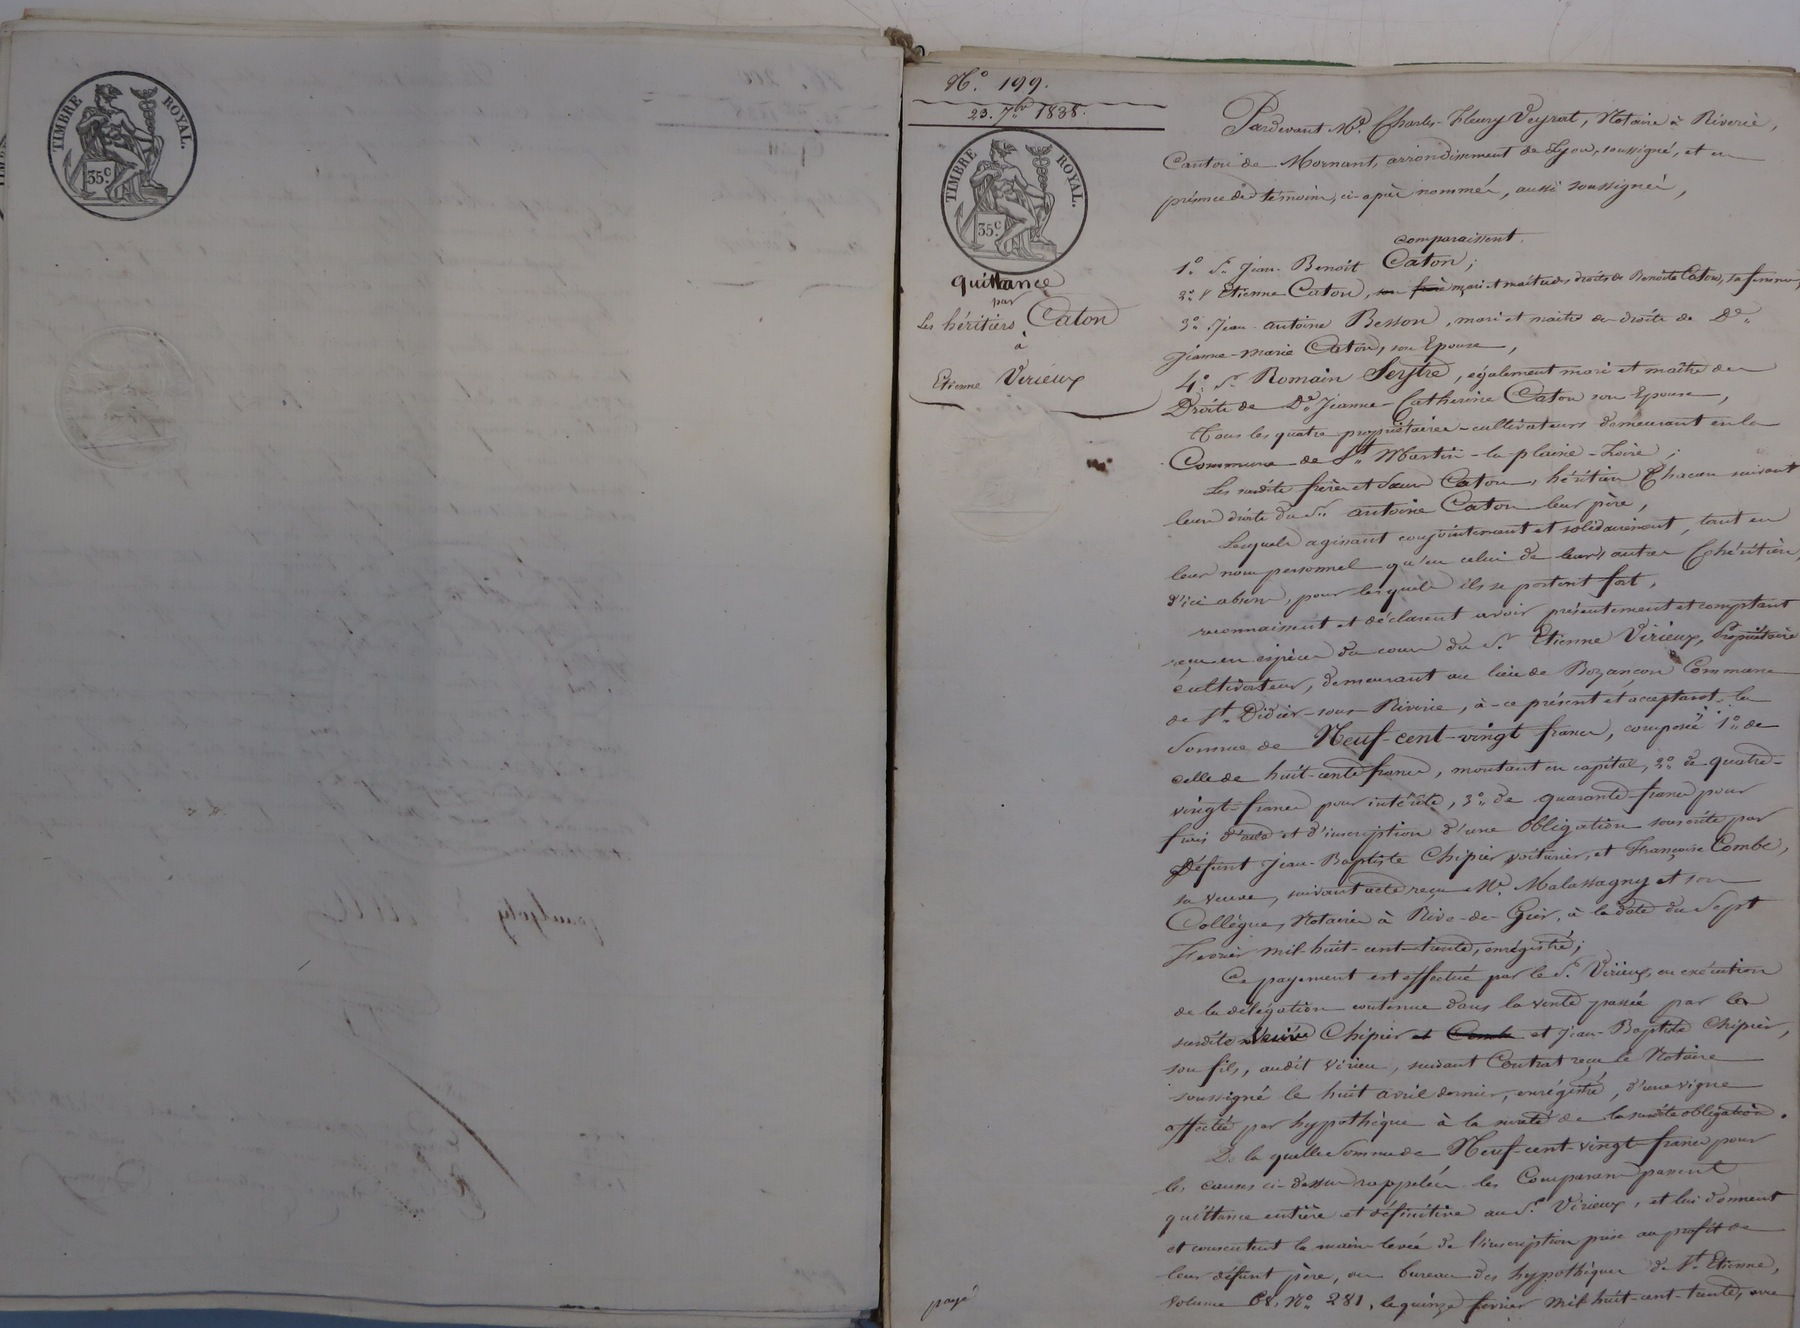 TIMBRE ROYAL.
35 c.
N.° 199.
23. 7bre 1838.
TIMBRE ROYAL.
35 c.
quittance
par
Les héritiers Caton
à
Etienne Virieux
payé
Pardevant Me. Charles-Fleury Veyrat, Notaire à Riverie,
Canton de Mornant, arrondissement de Lyon, soussigné, et en
présence des témoins, ci-après nommés, aussi soussignés,
comparaissent.
1.° Sr. Jean-Benoît Caton;
2.° Sr Etienne Caton, mari et maître des droits de Benoîte Caton, sa femme,
3.° Jean-antoine Besson, mari et maître des droits de De.
Jeanne-marie Caton, son Epouse,
4.° Sr. Romain Seytre, également mari et maître des
Droits de De. Jeanne-Catherine Caton son Epouse,
Tous les quatre propriétaires-cultivateurs demeurant en la
Commune de St. Martin-la-plaine-Loire;
Les susdits frères et Sœurs Caton, héritiers Chacun suivant
leurs droits du Sr. antoine Caton leur père,
Lesquels agissant conjointement et solidairement, tant en
leur nom personnel qu'en celui de leurs autres Cohéritiers,
d'ici absens, pour lesquels ils se portent fort,
reconnaissent et déclarent avoir présentement et comptant
reçu en espèces du cours du Sr. Etienne Virieux, Propriétaire
cultivateur, demeurant au lieu de Bozançon Commune
de St. Didier-sous-Riverie, à-ce présent et acceptant, la
Somme de Neuf-cent-vingt francs, composée 1.° de
celle de huit-cents francs, montant en capital, 2.° de quatre-
vingt-francs pour intérêts, 3.° de quarante-francs pour
frais d'acte et d'inscription d'une Obligation souscrite par
Défunt Jean-Baptiste Chipier, voiturier, et Françoise Combe,
sa veuve, suivant acte reçu Me. Malassagny et son
Collègue, Notaires à Rive-de-Gier, à la date du Sept
Fevrier mil-huit-cent-trente, enrégistré;
Ce payement est effectué par le Sr. Virieux, en exécution
de la délégation contenue dans la vente passée par les
susdits Veuve Chipier et Combe et Jean-Baptiste Chipier,
son fils, audit Virieu, suivant Contrat reçu le Notaire
soussigné le huit avril dernier, enrégistré, d'une vigne
affectée par hypothèque à la sureté de la susdite obligation.
De la quelle Somme de Neuf-cent-vingt-francs pour
les causes ci-dessus rappelées les Comparans passent
quittance entière et définitive au Sr. Virieux, et lui donnent
et consentent la main-levée de l'inscription prise au profit de
leur défunt père, au bureau des hypothèques de St. Etienne,
volume 68, No. 281, le quinze fevrier mil huit-cent-trente,